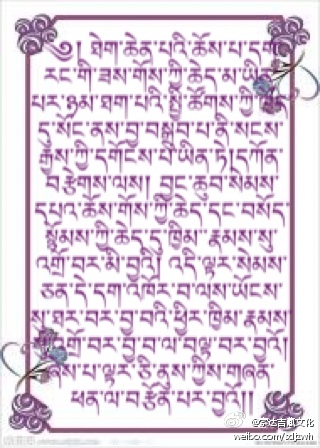 ༄། ཐེག་ཆེན་པའི་ཆོས་པ་དག་
རང་གི་ཟས་གོས་ཀྱི་ཆེད་མ་ཡིན་
པར་ཉམ་ཐག་པའི་སྤྱོ་ཚོགས་ཀྱི་ཁྱེད་
དུ་སོང་ནས་བྱ་བསྒྲུབ་པ་ནི་སངས་
རྒྱས་ཀྱི་དགོངས་པ་ཡིན་ཏེ།དཀོན་
བརྩེགས་ལས། བྱང་ཆུབ་སེམས་
དཔའ་ཆོས་གོས་ཀྱི་ཆེད་དང་བསོད་
སྙོམས་ཀྱི་ཆེད་དུ་ཁྱིམ་རྣམས་སུ་
འགྲོ་བར་མི་བྱའི། འདི་ལྟར་སེམས་
ཅན་དེ་དག་འཁོར་བ་ལས་ཡོངས་
སུ་ཐར་བར་བྱ་བའི་ཕྱིར་ཁྱིམ་རྣམས་
སུ་འགྲོ་བར་བྱ་བ་ལ་བལྟ་བར་བྱའོ།
ཞེས་པ་ལྟར་ཅི་ནས་ཀྱིས་གཞན་
ཕན་ལ་བརྩོན་པར་བྱའོ།།
weibo.com/xdjzwh